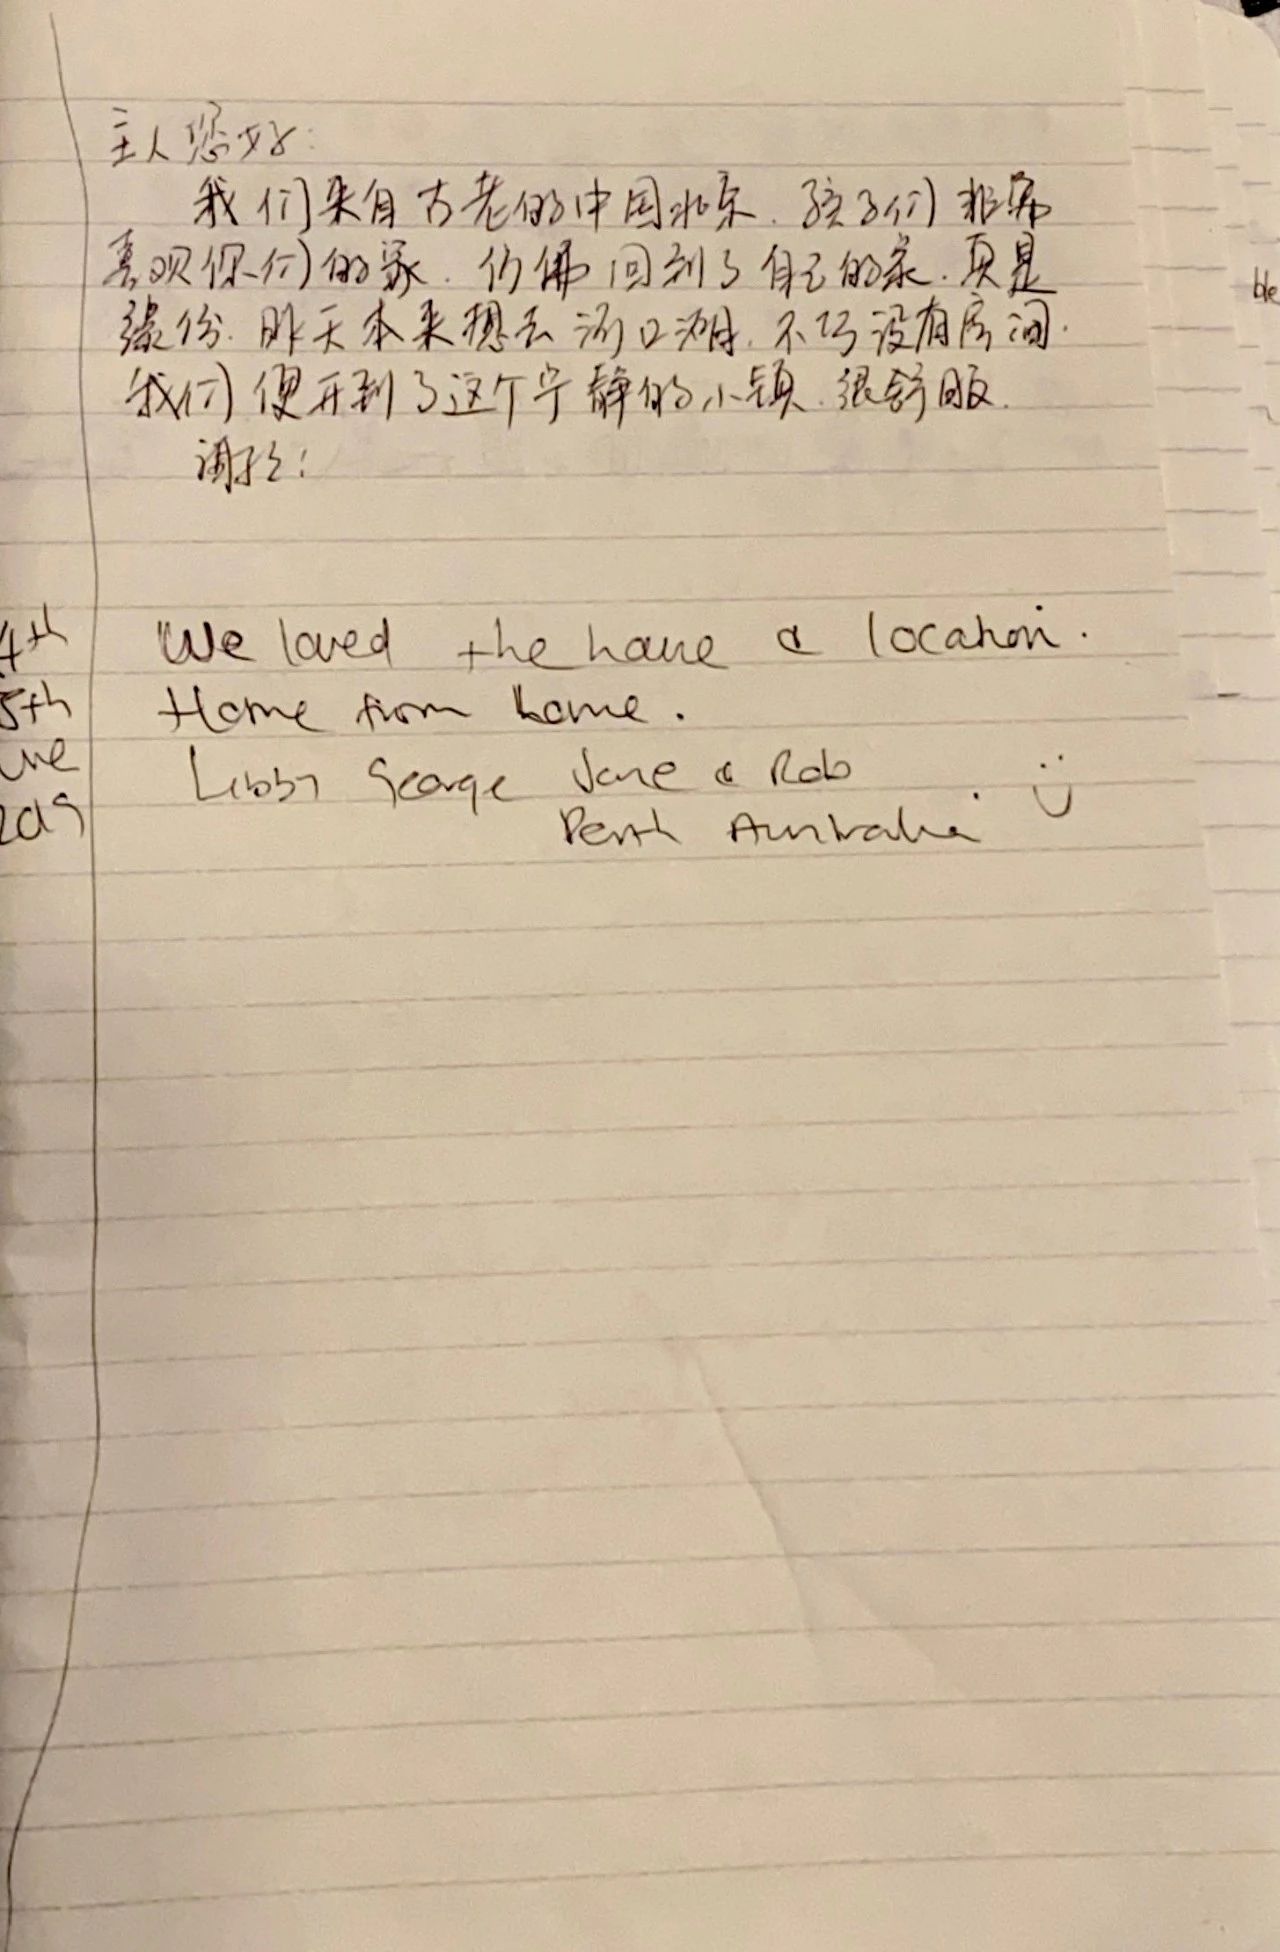 主人您好:
我们来自古老的中国北京.孩子们非常
喜欢你们的家.仿佛回到了自己的家.真是
缘份.昨天本来想去河口湖.不巧没有房间.
我们便开到了这个宁静的小镇.很舒服.
谢谢!
4th We loved the house & location.
5th Home from home.
une Libby George Jane & Rob
2019 Perth Australia :)
ble